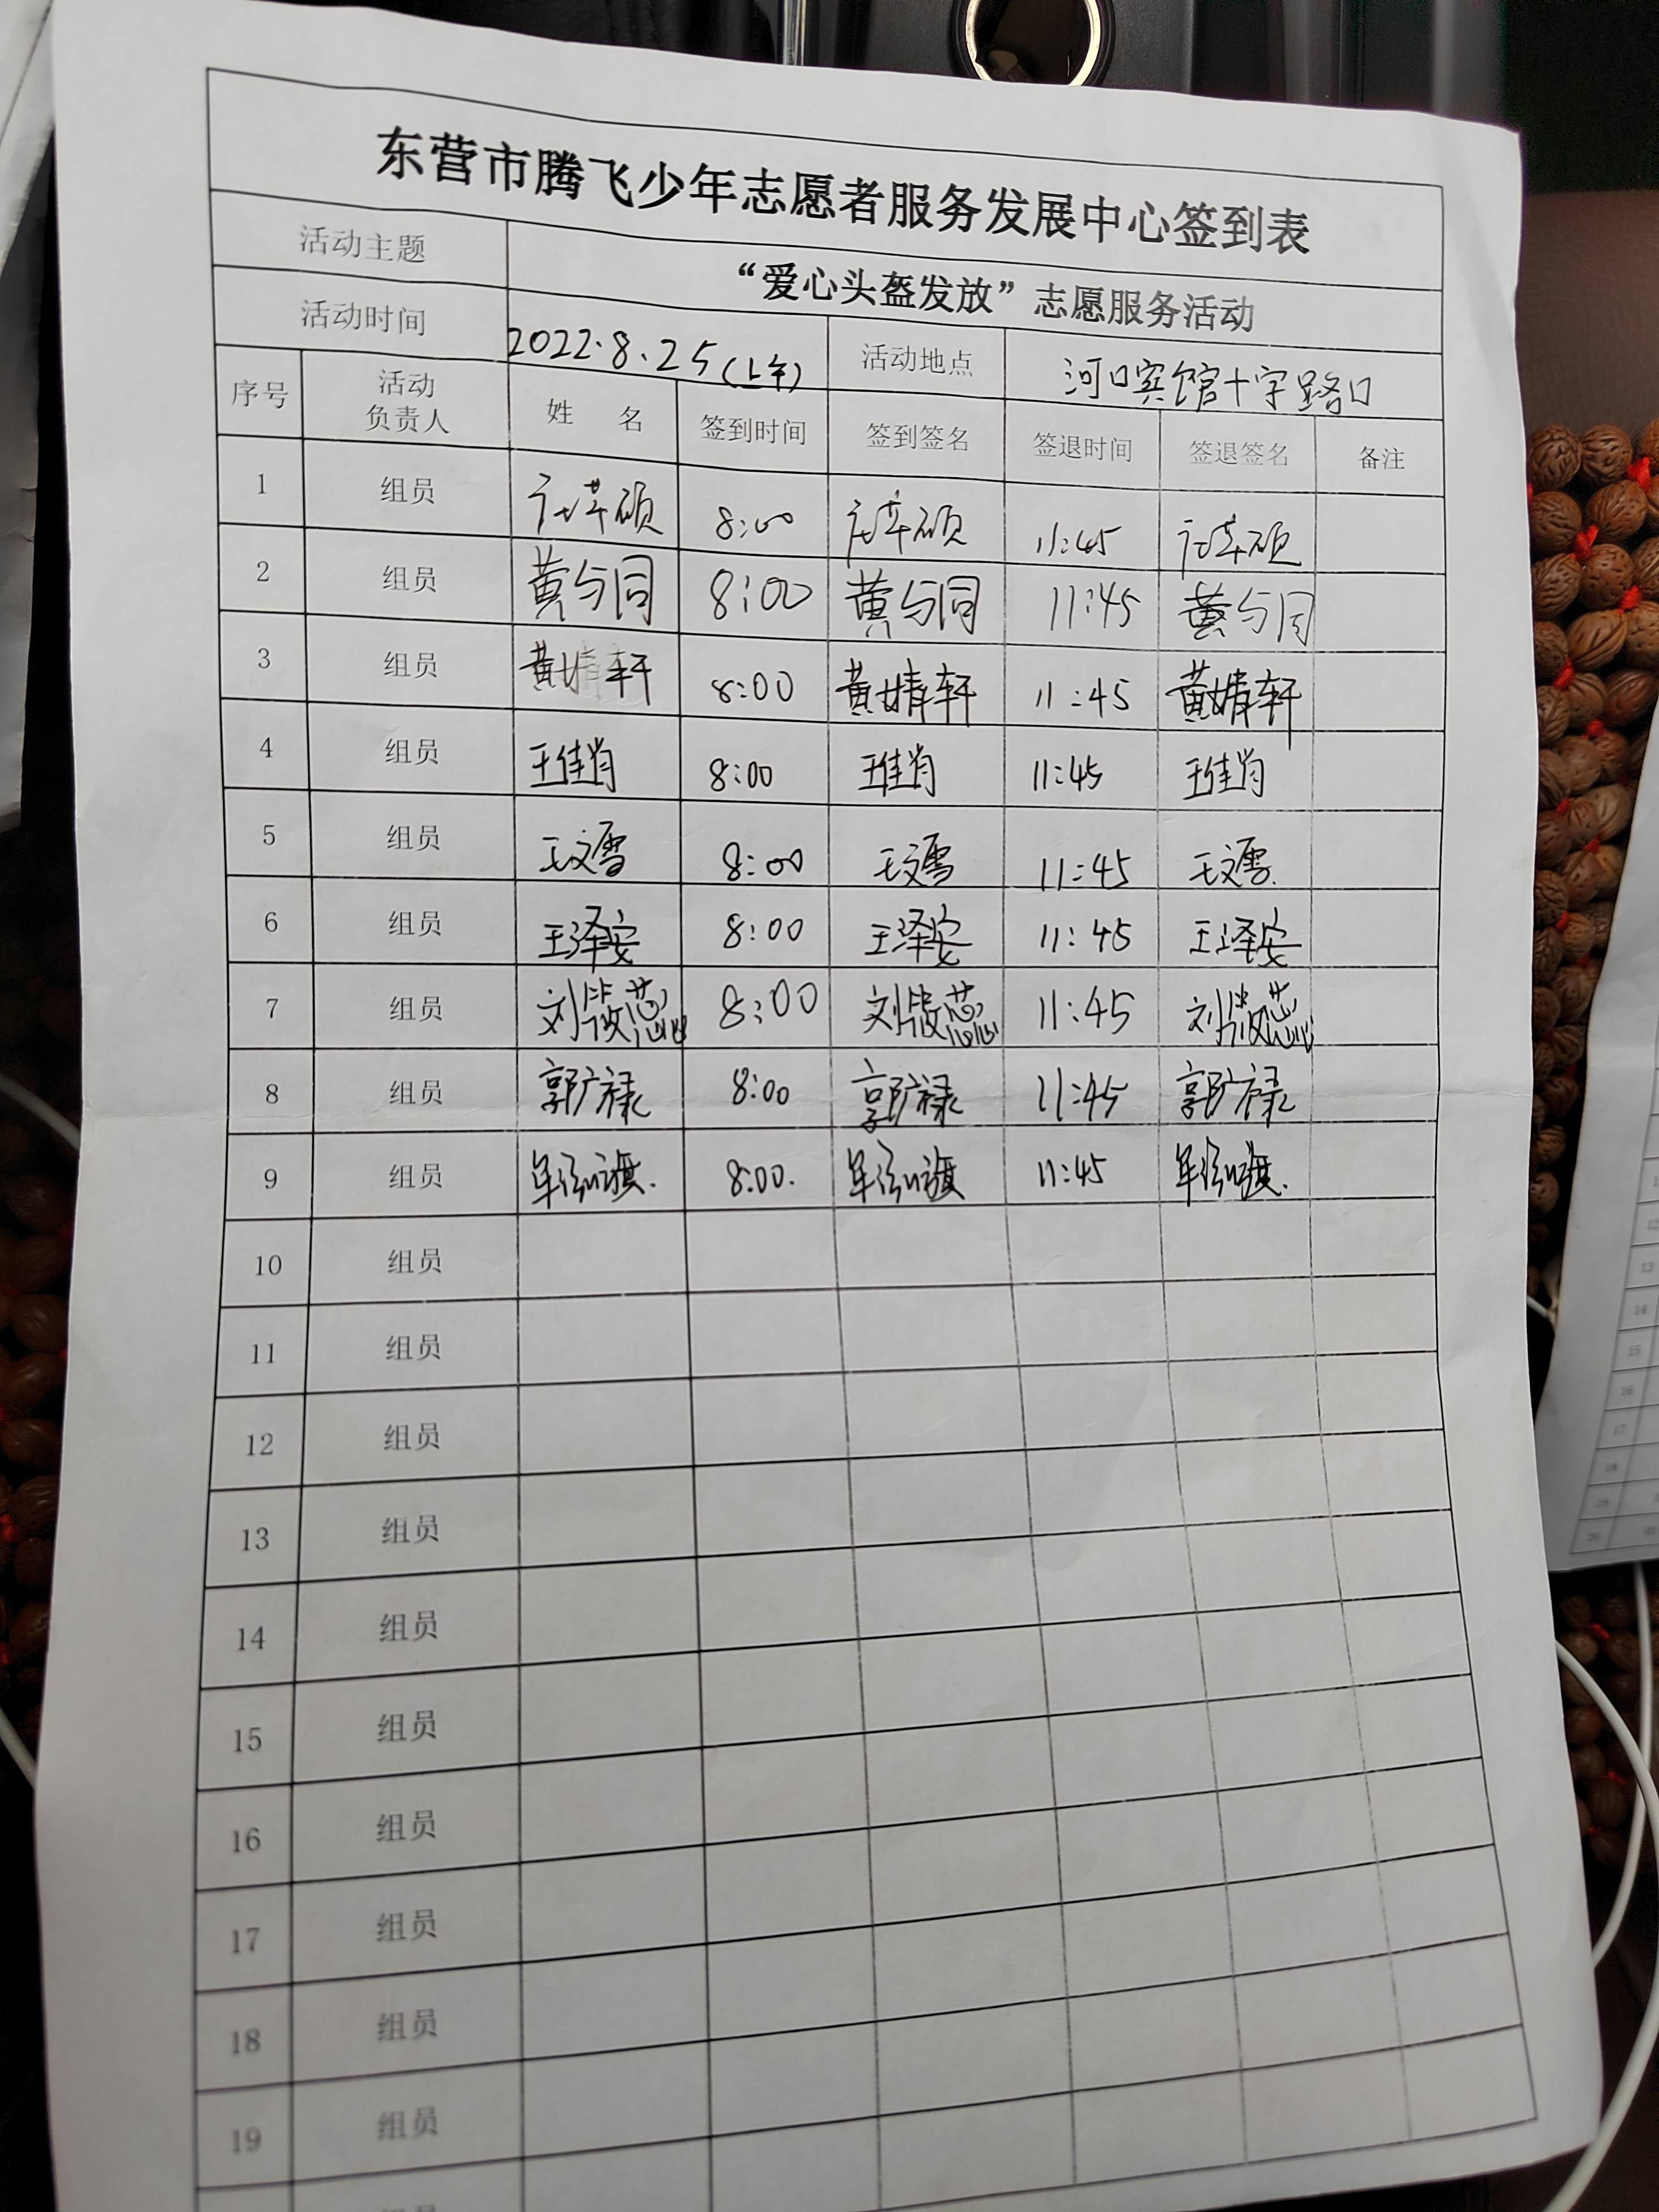 东营市腾飞少年志愿者服务发展中心签到表
活动主题 “爱心头盔发放”志愿服务活动
活动时间 2022.8.25(上午) 活动地点 河口宾馆十字路口
序号 活动负责人 姓 名 签到时间 签到签名 签退时间 签退签名 备注
1 组员 8:00 11:45
2 组员 黄与同 8:00 黄与同 11:45 黄与同
3 组员 黄婧轩 8:00 黄婧轩 11:45 黄婧轩
4 组员 王佳肖 8:00 王佳肖 11:45 王佳肖
5 组员 王文雪 8:00 王文雪 11:45 王文雪
6 组员 王泽安 8:00 王泽安 11:45 王泽安
7 组员 刘 8:00 刘 11:45 刘
8 组员 郭广禄 8:00 郭广禄 11:45 郭广禄
9 组员 8:00. 11:45
10 组员
11 组员
12 组员
13 组员
14 组员
15 组员
16 组员
17 组员
18 组员
19 组员
组员
12
13
14
15
16
17
18
19
20